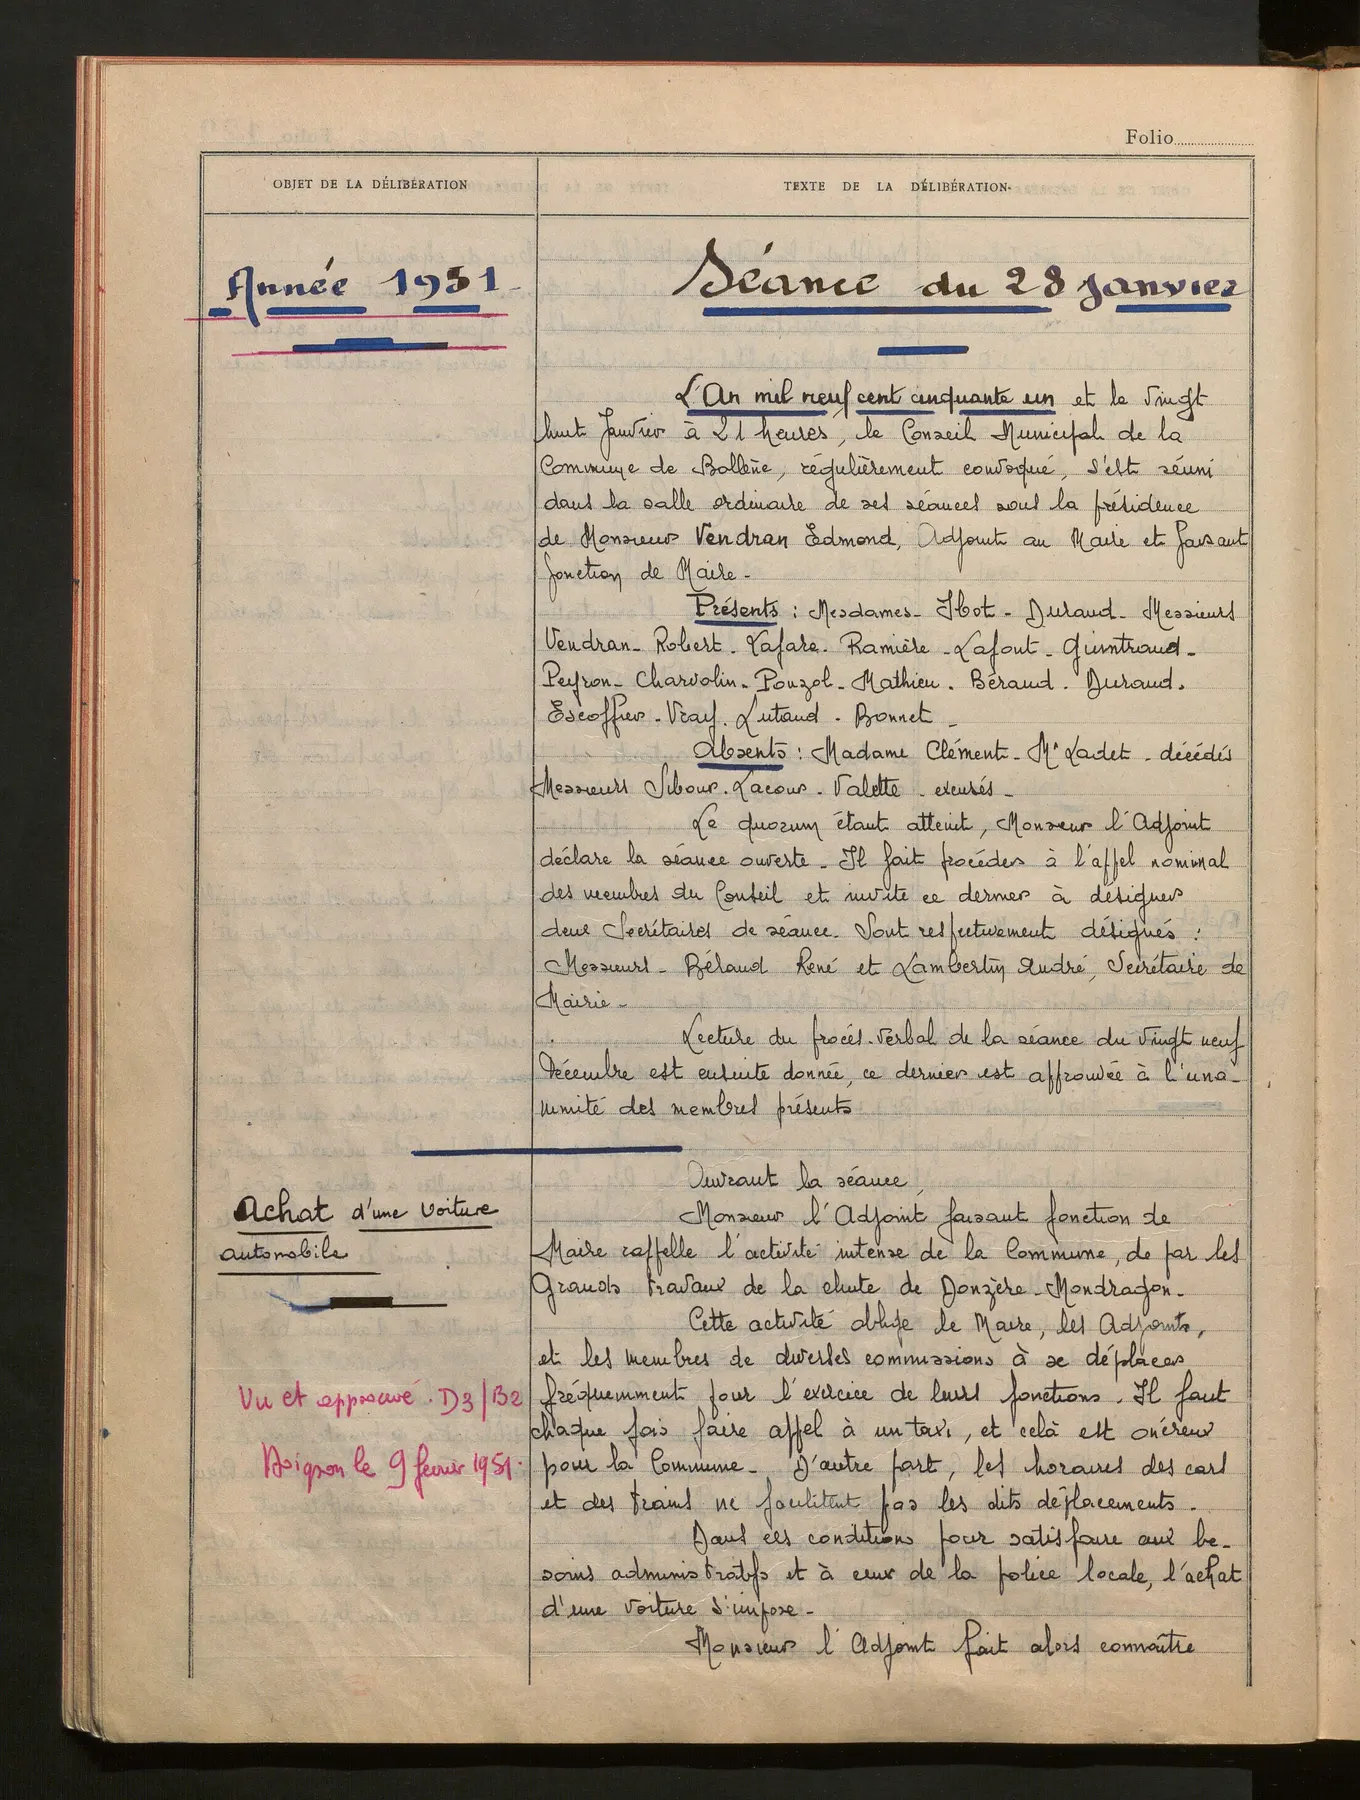 Folio
OBJET DE LA DÉLIBÉRATION
TEXTE DE LA DÉLIBÉRATION
Année 1951
Séance du 28 Janvier
L'An mil neuf cent cinquante un et le Vingt
huit Janvier à 21 heures, le Conseil Municipal de la
Commune de Bollène, régulièrement convoqué, s'est réuni
dans la salle ordinaire de ses séances sous la présidence
de Monsieur Vendran Edmond, Adjoint au Maire et faisant
fonction de Maire -
Présents : Mesdames - Ibot - Durand - Messieurs
Vendran - Robert - Lafare - Ramière - Lafont - Guintrand -
Peyron - Charvolin - Pouzol - Mathieu - Béraud - Durand -
Escoffier - Vray - Lutaud - Bonnet -
Absents : Madame Clément - Mr Ladet - décédés
Messieurs Sibour - Lacour - Valette - excusés -
Le quorum étant atteint, Monsieur l'Adjoint
déclare la séance ouverte - Il fait procéder à l'appel nominal
des membres du Conseil et invite ce dernier à désigner
deux Secrétaires de séance. Sont respectivement désignés :
Messieurs - Béraud René et Lambertin André, Secrétaire de
Mairie -
Lecture du procès-verbal de la séance du Vingt neuf
Décembre est ensuite donnée, ce dernier est approuvée à l'una-
nimité des membres présents
Ouvrant la séance,
Achat d'une Voiture
automobile
Monsieur l'Adjoint faisant fonction de
Maire rappelle l'activité intense de la Commune, de par les
Grands travaux de la chute de Donzère-Mondragon -
Cette activité oblige le Maire, les Adjoints,
et les membres de diverses commissions à se déplacer
Vu et approuvé. D3/B2
fréquemment pour l'exercice de leurs fonctions. Il faut
chaque fois faire appel à un taxi, et celà est onéreux
Avignon le 9 février 1951.
pour la Commune - D'autre part, les horaires des cars
et des trains ne facilitent pas les dits déplacements.
Dans ces conditions pour satisfaire aux be-
soins administratifs et à ceux de la police locale, l'achat
d'une voiture s'impose -
Monsieur l'Adjoint fait alors connaître